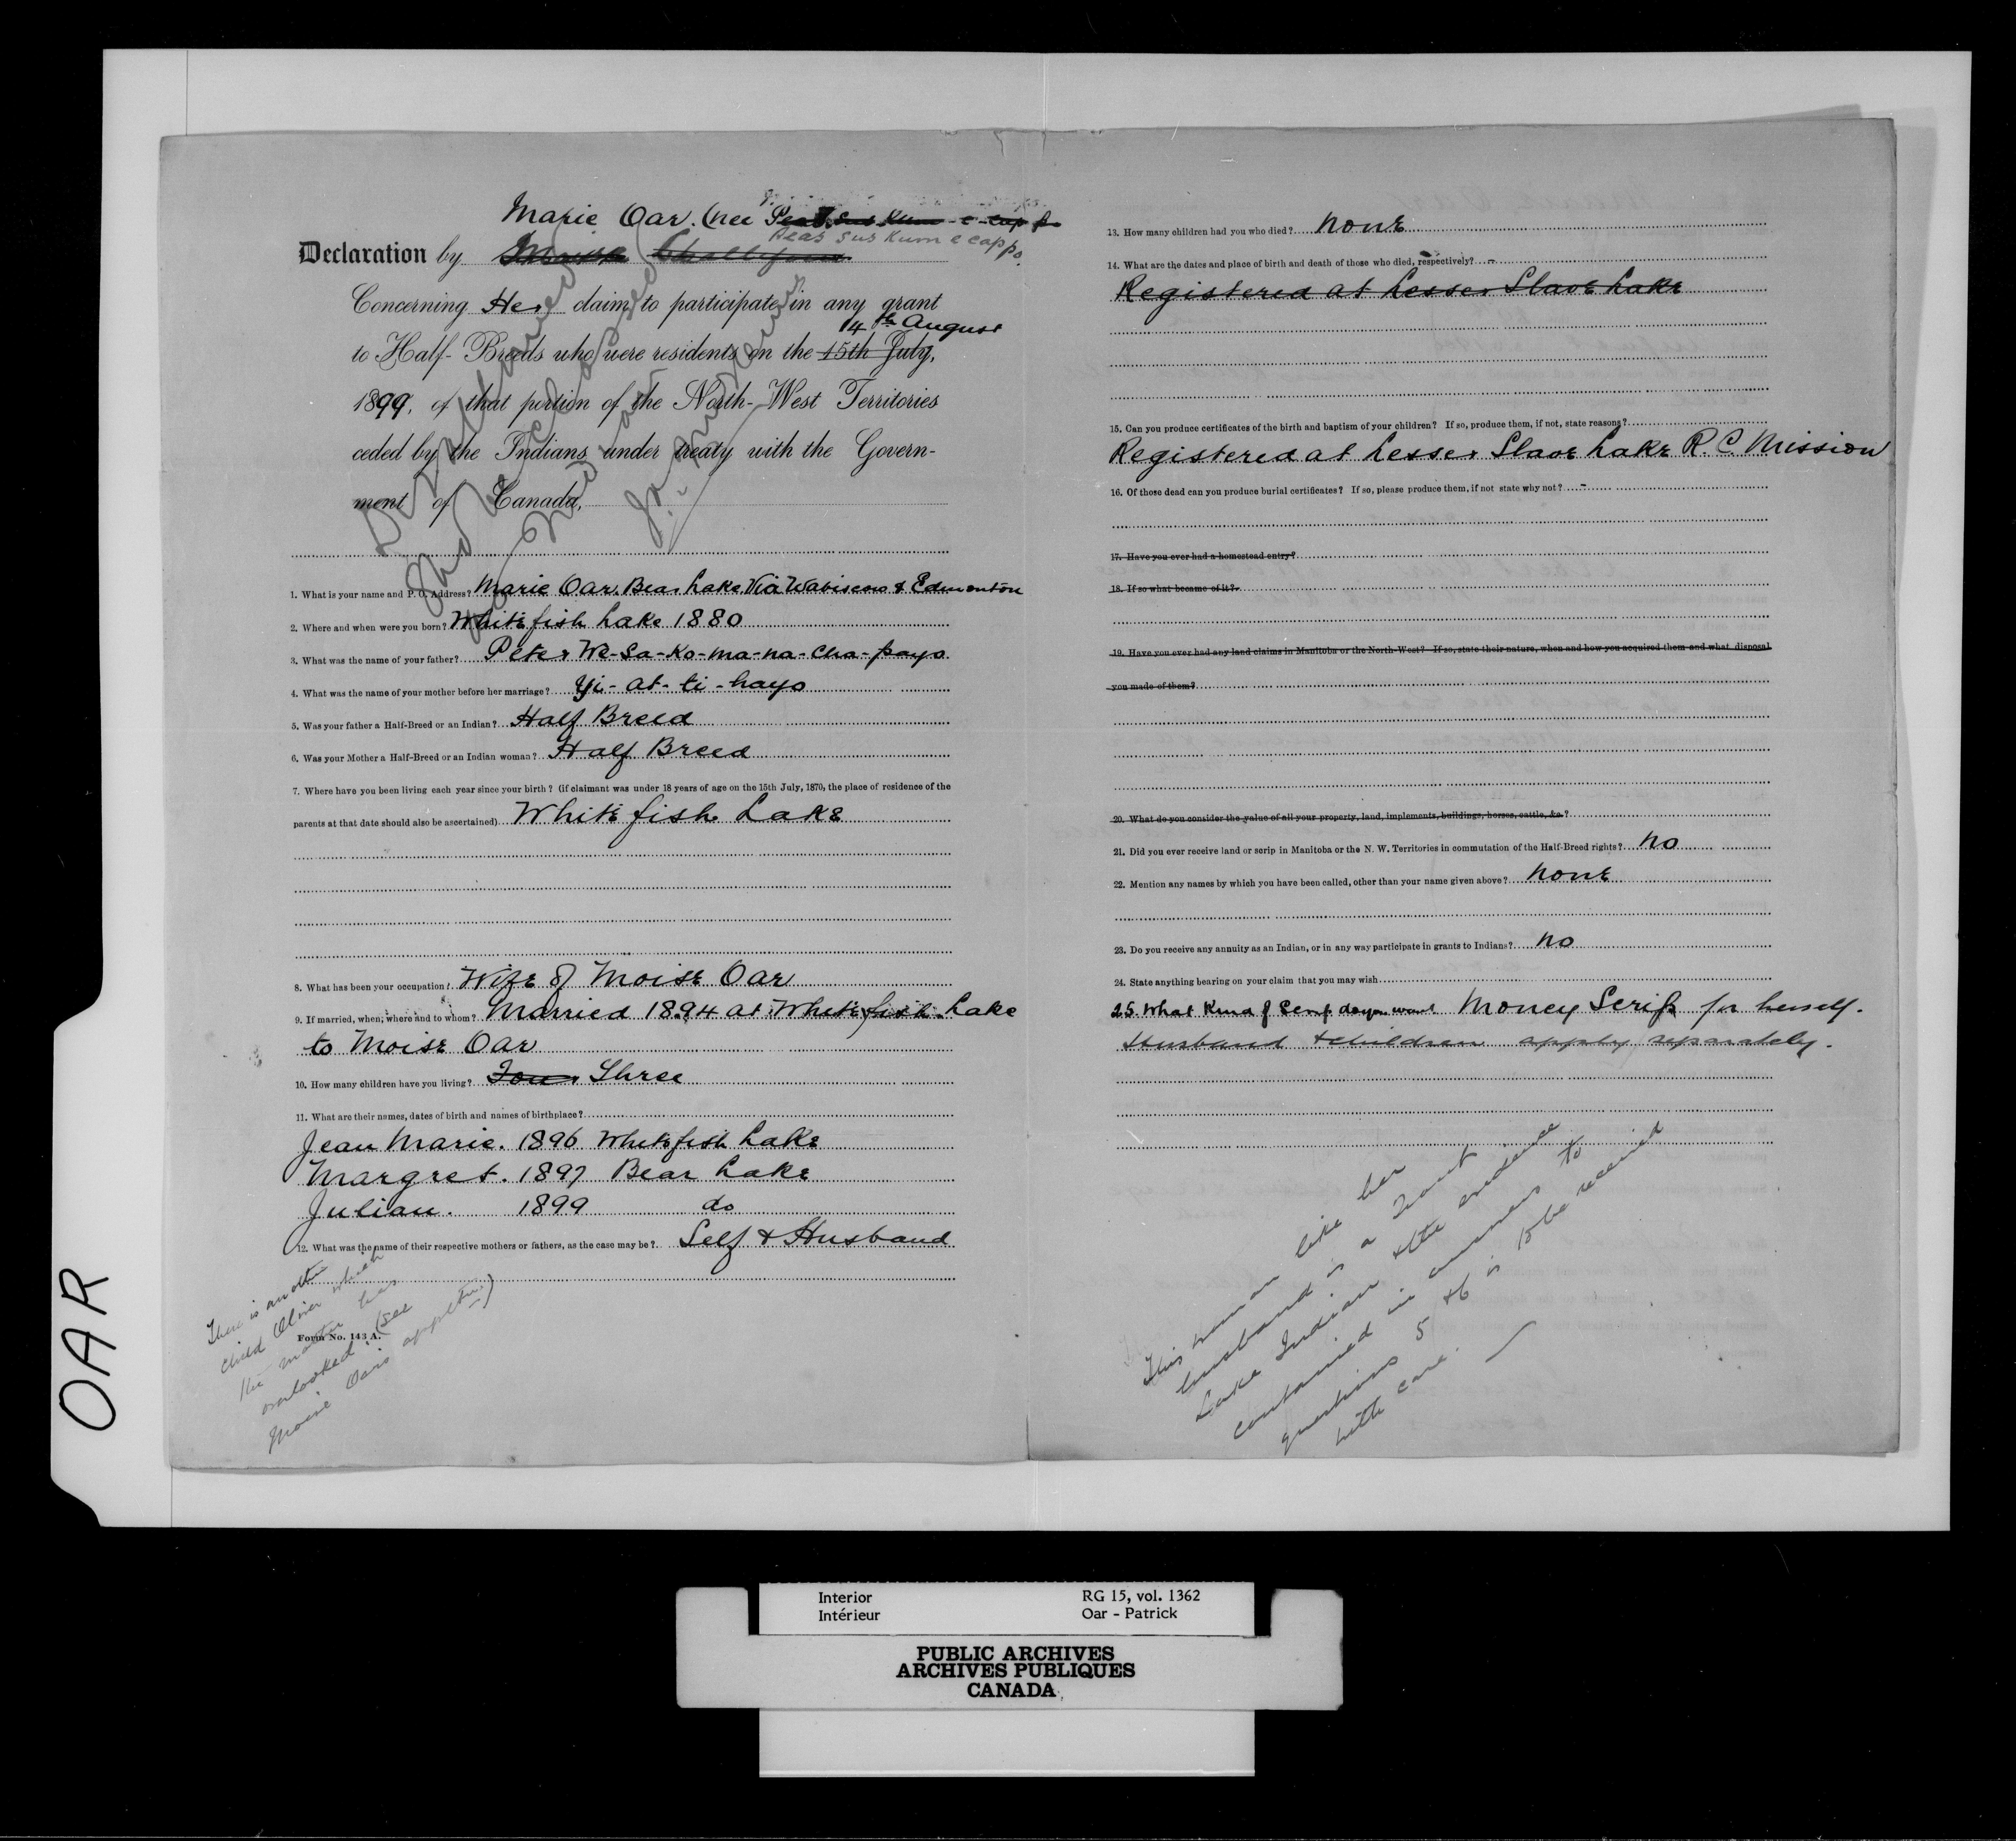 OAR
Marie Oar. (nee
Peas sus kum e cappo.
Declaration by
Concerning Her claim to participate in any grant
14th August
to Half-Breeds who were residents on the 15th July,
1899, of that portion of the North-West Territories
ceded by the Indians under treaty with the Govern-
ment of Canada,
Disallowed
1. What is your name and P. O. Address? Marie Oar. Bear Lake Via Wabiscow & Edmonton
2. Where and when were you born? White fish Lake 1880
3. What was the name of your father? Peter We-sa-ko-ma-na-cha-payo
4. What was the name of your mother before her marriage? Yi-at-ti-hayo
5. Was your father a Half-Breed or an Indian? Half Breed
6. Was your Mother a Half-Breed or an Indian woman? Half Breed
7. Where have you been living each year since your birth? (if claimant was under 18 years of age on the 15th July, 1870, the place of residence of the
parents at that date should also be ascertained) White fish Lake
8. What has been your occupation? Wife of Moise Oar
9. If married, when; where and to whom? Married 1894 at White fish Lake
to Moise Oar
10. How many children have you living? Four Three
11. What are their names, dates of birth and names of birthplace?
Jean Marie. 1896 Whitefish Lake
Margret. 1897 Bear Lake
Julian. 1899 do
12. What was the name of their respective mothers or fathers, as the case may be? Self & Husband
There is another
child Olivier which
the mother has
overlooked. (see
Moise Oar's appltn.)
Form No. 143 A.
13. How many children had you who died? none
14. What are the dates and place of birth and death of those who died, respectively? -
Registered at Lesser Slave Lake
15. Can you produce certificates of the birth and baptism of your children? If so, produce them, if not, state reasons?
Registered at Lesser Slave Lake R. C. Mission
16. Of those dead can you produce burial certificates? If so, please produce them, if not state why not? -
17. Have you ever had a homestead entry?
18. If so what became of it?
19. Have you ever had any land claims in Manitoba or the North-West? If so, state their nature, when and how you acquired them and what disposal
you made of them?
20. What do you consider the value of all your property, land, implements, buildings, horses, cattle, &c.?
21. Did you ever receive land or scrip in Manitoba or the N. W. Territories in commutation of the Half-Breed rights? No
22. Mention any names by which you have been called, other than your name given above? None
23. Do you receive any annuity as an Indian, or in any way participate in grants to Indians? No
24. State anything bearing on your claim that you may wish
25. What Kind of Scrip do you want Money Scrip for herself.
Husband & children apply separately.
This woman like her
husband is a Trout
Lake Indian & the evidence
contained in answers to
questions 5 & 6 is to be received
with care.
Interior
Intérieur
RG 15, vol. 1362
Oar - Patrick
PUBLIC ARCHIVES
ARCHIVES PUBLIQUES
CANADA